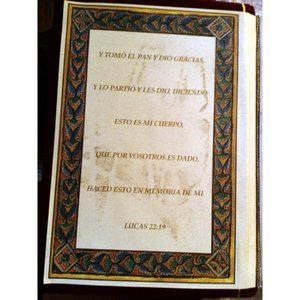 Y TOMÓ EL PAN Y DIO GRACIAS,
Y LO PARTIÓ Y LES DIO, DICIENDO:
ESTO ES MI CUERPO,
QUE POR VOSOTROS ES DADO,
HACED ESTO EN MEMORIA DE MI.
LUCAS 22:19